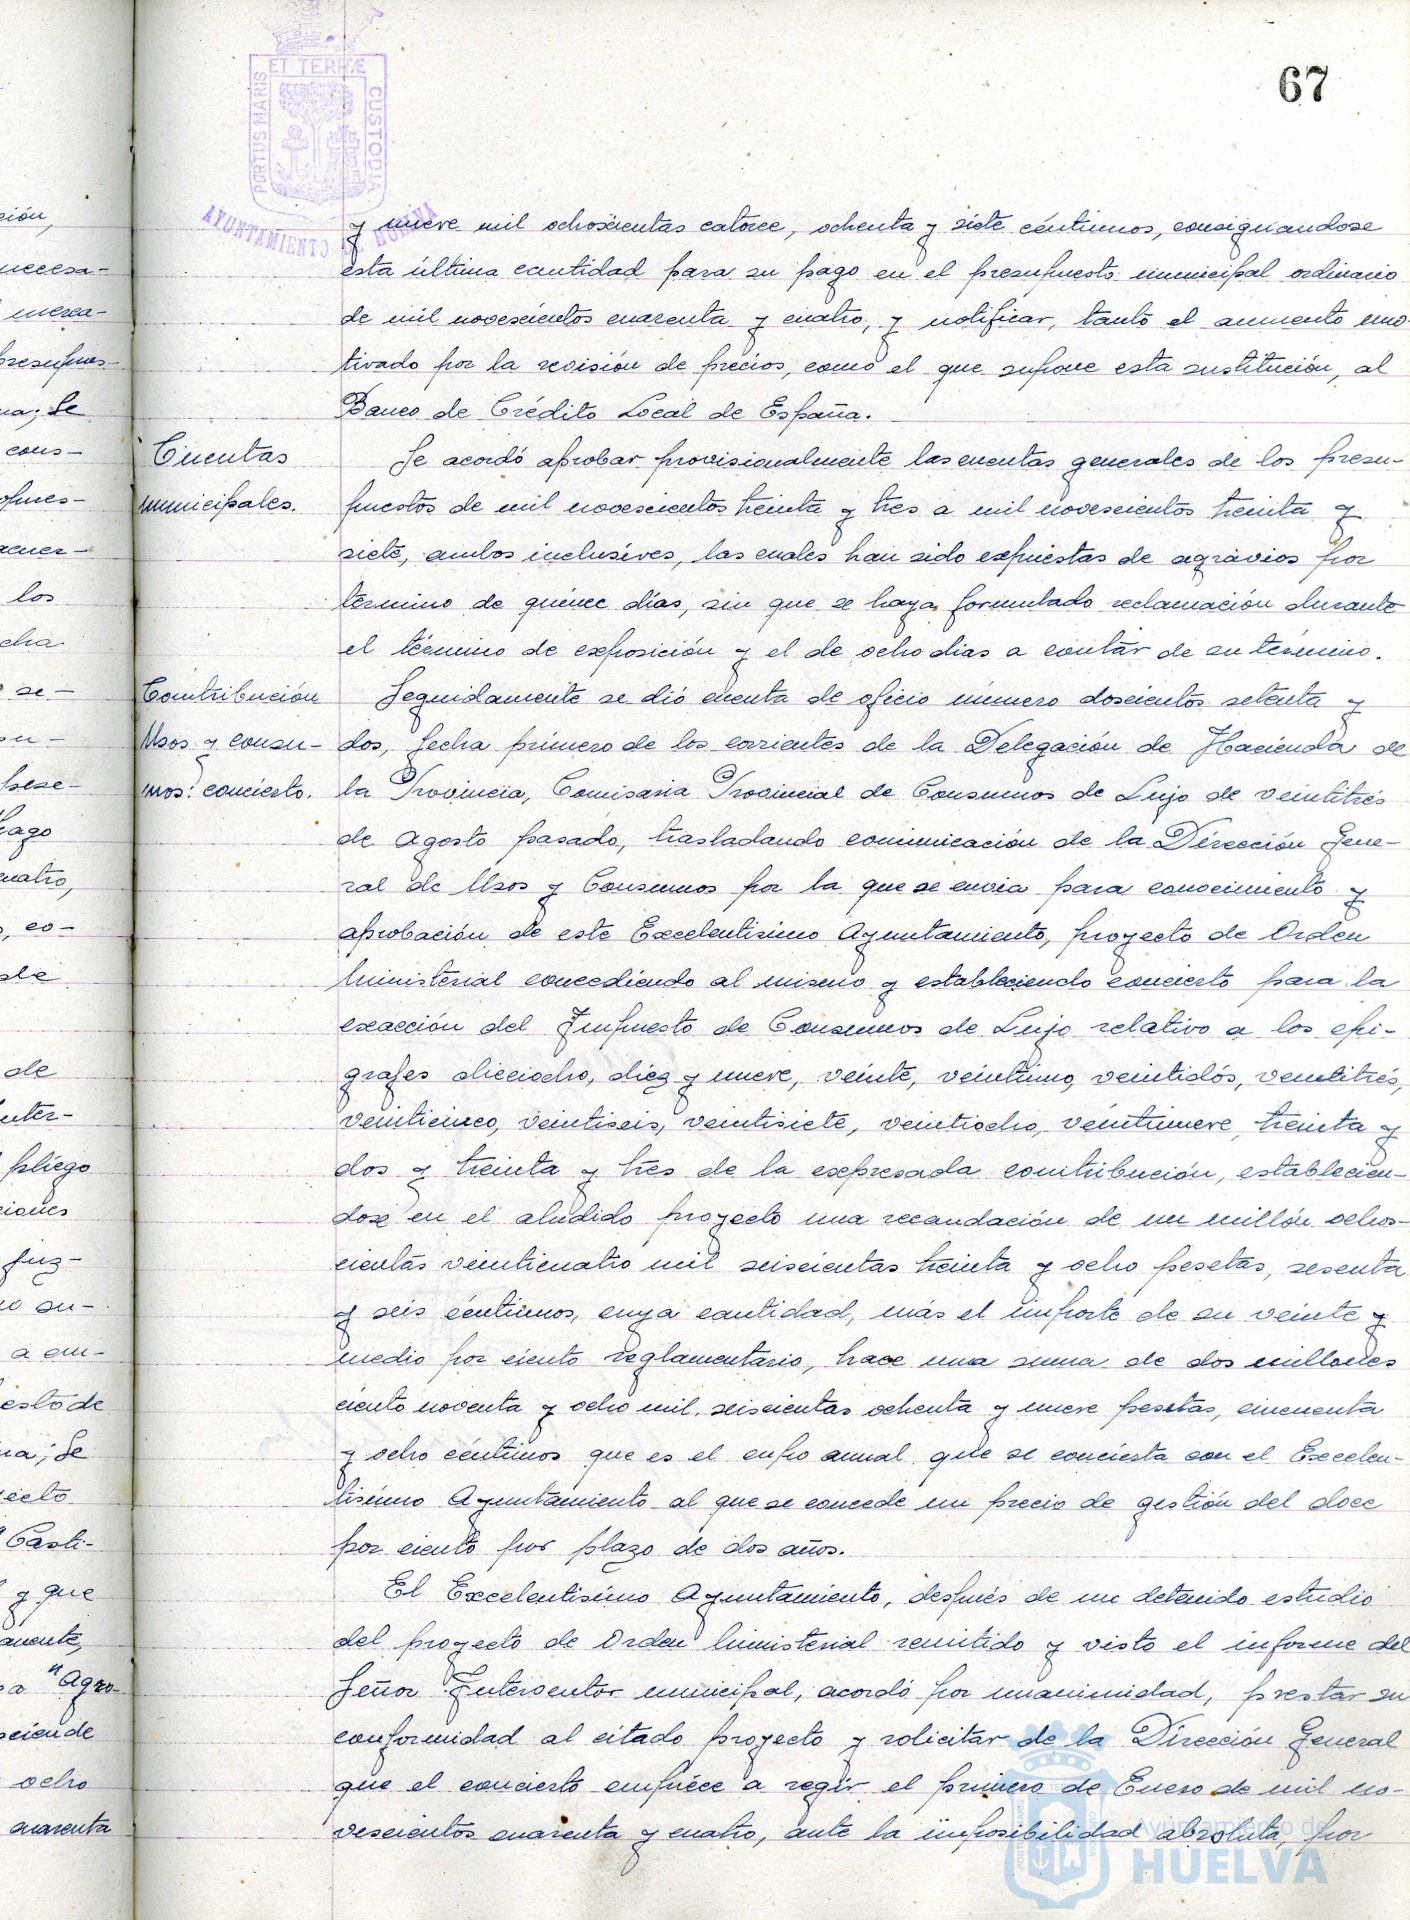 67
ET TERRÆ
PORTUS MARIS
CUSTODIA
AYUNTAMIENTO DE HUELVA
y nueve mil ochoscientas catorce, ochenta y siete céntimos, consignandose
esta última cantidad para su pago en el presupuesto municipal ordinario
de mil novescientos cuarenta y cuatro, y notificar, tanto el aumento mo-
tivado por la revisión de precios, como el que supone esta sustitución, al
Banco de Crédito Local de España.
Cuentas
municipales.
Se acordó aprobar provisionalmente las cuentas generales de los presu-
puestos de mil novescientos treinta y tres a mil novescientos treinta y
siete, ambos inclusives, las cuales han sido expuestas de agravios por
término de quince días, sin que se haya formulado reclamación durante
el término de exposición y el de ocho dias a contar de su término.
Contribución
Usos y consu-
mos: concierto.
Seguidamente se dió cuenta de oficio número doscientos setenta y
dos, fecha primero de los corrientes de la Delegación de Hacienda de
la Provincia, Comisaria Provincial de Consumos de Lujo de veintitrés
de Agosto pasado, trasladando comunicación de la Dirección Gene-
ral de Usos y Consumos por la que se envia para conocimiento y
aprobación de este Excelentisimo Ayuntamiento, proyecto de Orden
Ministerial concediendo al mismo y estableciendo concierto para la
exacción del Impuesto de Consumos de Lujo relativo a los epi-
grafes dieciocho, diez y nueve, veinte, veintiuno, veintidós, veintitrés,
veinticinco, veintiseis, veintisiete, veintiocho, veintinueve, treinta y
dos y treinta y tres de la expresada contribución, establecien-
dose en el aludido proyecto una recaudación de un millón ochos-
cientas veinticuatro mil seiscientas treinta y ocho pesetas, sesenta
y seis céntimos, cuya cantidad, más el importe de su veinte y
medio por ciento reglamentario, hace una suma de dos millones
ciento noventa y ocho mil, seiscientas ochenta y nueve pesetas, cincuenta
y ocho céntimos que es el cupo anual que se concierta con el Excelen-
tisimo Ayuntamiento al que se concede un precio de gestión del doce
por ciento por plazo de dos años.
El Excelentisimo Ayuntamiento, después de un detenido estudio
del proyecto de Orden Ministerial remitido y visto el informe del
Señor Interventor municipal, acordó por unanimidad, prestar su
conformidad al citado proyecto y solicitar de la Dirección General
que el concierto empiece a regir el primero de Enero de mil no-
vescientos cuarenta y cuatro, ante la imposibilidad absoluta, por
Ayuntamiento de
HUELVA